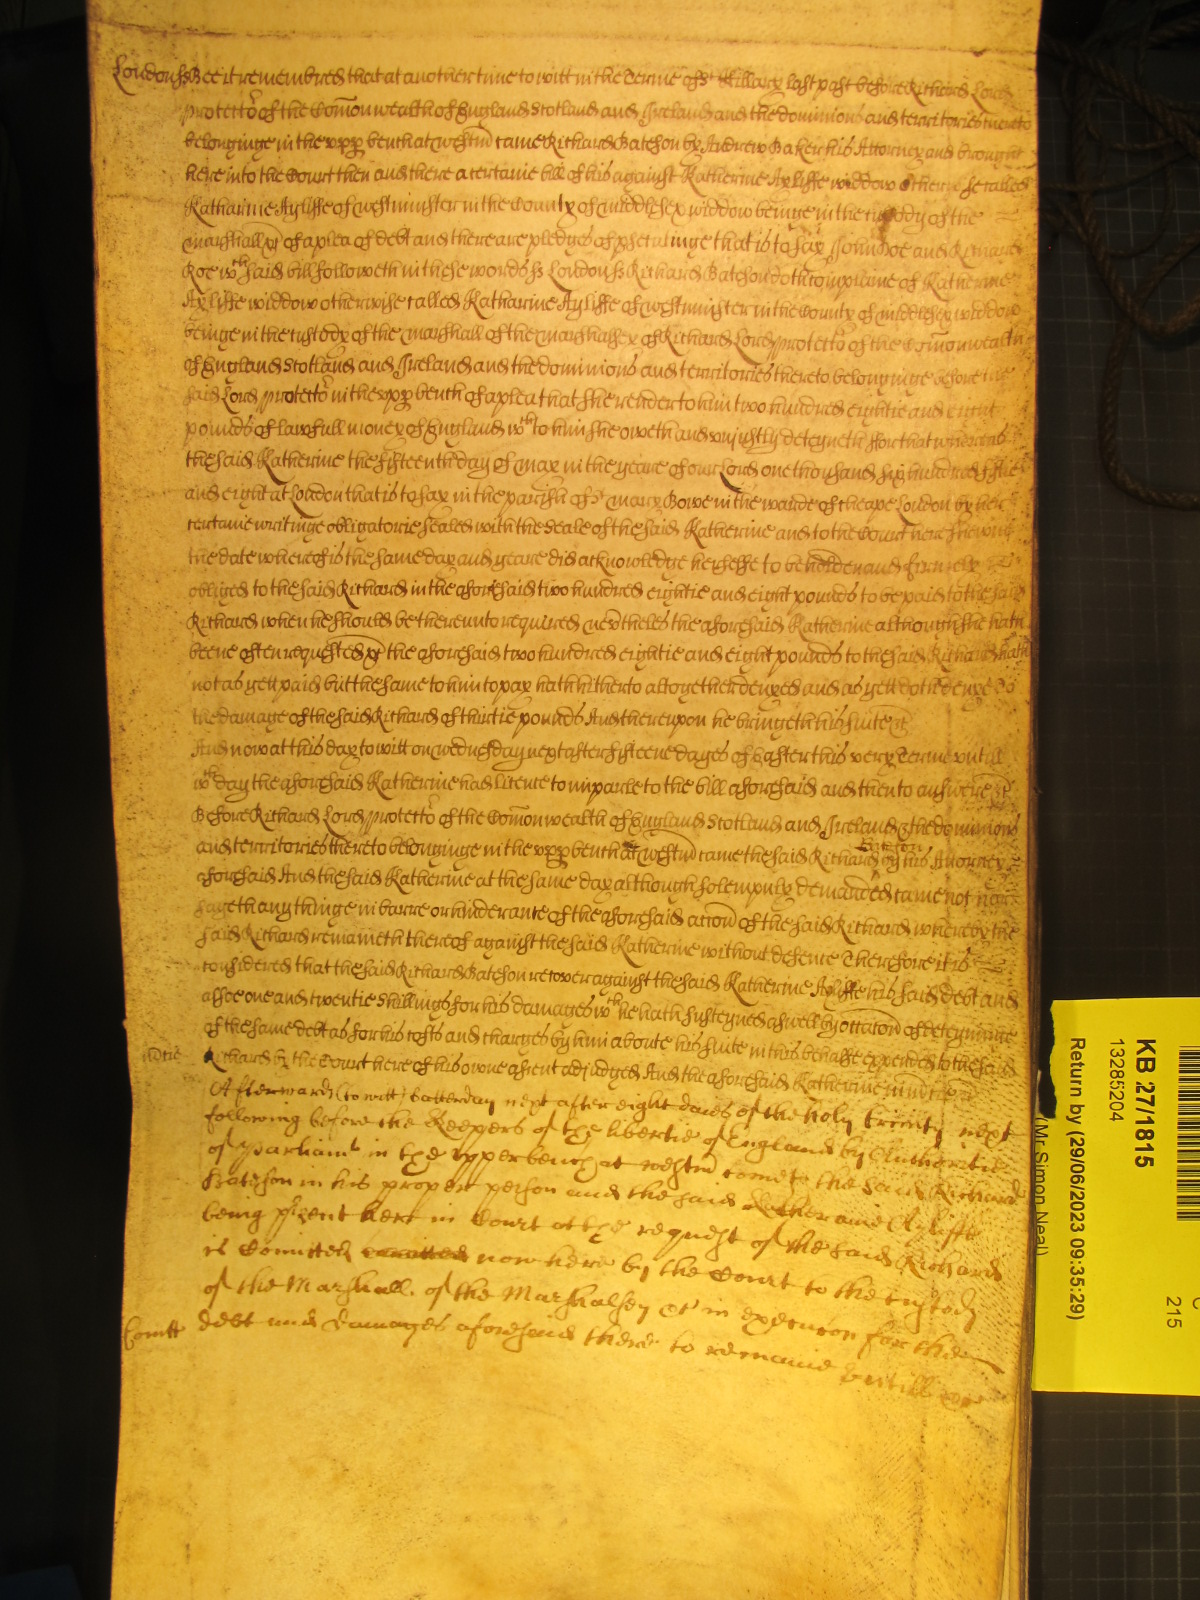 London ss Bee it remembred that at another time to witt in the Terme of St Hillary last past before Richard Lord
Protector of the Comonwealth of England Scotland and Ireland and the dominions and territories thereto
belonginge in the upp bench at westm came Richard Batchon by Andrew Baker his Attorney and brought
here into the Court then and there a certaine bill of his against Katherine Ayliffe widdow otherwise called
Katharine Ayliffe of westminster in the County of Middlesex widdow beinge in the custody of the
marshall &c of a plea of debt and there are pledges of prsecutinge that is to say John Doe and Richard
Roe wch said bill followeth in these words ss London ss Richard Batchon doth complaine of Katherine
Ayliffe widdow otherwise called Katharine Ayliffe of westminster in the County of middlesex widdow
beinge in the custody of the marshall of the marshalsey of Richard Lord protector of the Comonwealth
of England Scotland and Ireland and the dominions and territories thereto belonginge before the
said Lord protector in the upp bench of a plea that she render to him two hundred eightie and eight
pounds of lawfull money of England wch to him she oweth and unjustly deteyneth ffor that whereas
the said Katherine the fifteenth day of may in the yeare of our Lord one thousand six hundred fiftie
and eight at London that is to say in the parish of St mary Bowe in the warde of cheape London by her
certaine writinge obligatorie sealed with the seale of the said Katherine and to the Court here shewed
the date whereof is the same day and yeare did acknowledge herselfe to be holden and firmely
obliged to the said Richard in the aforesaid two hundred eightie and eight pounds to be paid to the said
Richard when he should be thereunto required nevtheles the aforesaid Katherine although she hath
beene often requested &c the aforesaid two hundred eightie and eight pounds to the said Richard hath
not as yett paid but the same to him to pay hath hitherto altogether denyed and as yett doth denye to
the damage of the said Richard of thirtie pounds And thereupon he bringeth his suite &c
And now at this day to witt on wednesday next after fifteene dayes of Easter this very Terme untill
wch day the aforesaid Katherine had licence to imparle to the bill aforesaid and then to answere &c
Before Richard Lord protector of the Comonwealth of England Scotland and Ireland & the dominions
and territories thereto belonginge in the upp bench at westm came the said Richard Batchon by his Attorney
aforesaid And the said Katherine at the same day although solempnly demanded came not nor
sayeth any thinge in barre or hinderance of the aforesaid accon of the said Richard whereby the
said Richard remaineth thereof against the said Katherine without defence Therefore it is
considered that the said Richard Batchon recover against the said Katherine Ayliffe his said debt and
allsoe one and twentie shillings for his damages wch he hath susteyned aswell by occacon of deteyninge
of the same debt as for his costs and charges by him aboute his suite in this behalfe expended to the said
Richard by the Court here of his owne assent adjudged And the aforesaid Katherine in mercie &c
Afterwards (to witt) Satterday next after eight daies of the holy trinity next
following before the Keepers of the libertie of England by Authoritie
of Parliamt in the upper bench at westm cometh the said Richard
Batchon in his proper person and the said Katheraine Ayliffe
being psent here in Court at the request of the said Richard
is Comitted now here by the Court to the custody
of the Marshall of the Marshalsey &c in execucon for the
Comitt debt and damages aforesaid there to remaine untill &c
KB 27/1815
13285204
Return by (29/06/2023 09:35:29)
(Mr Simon Neal)
215